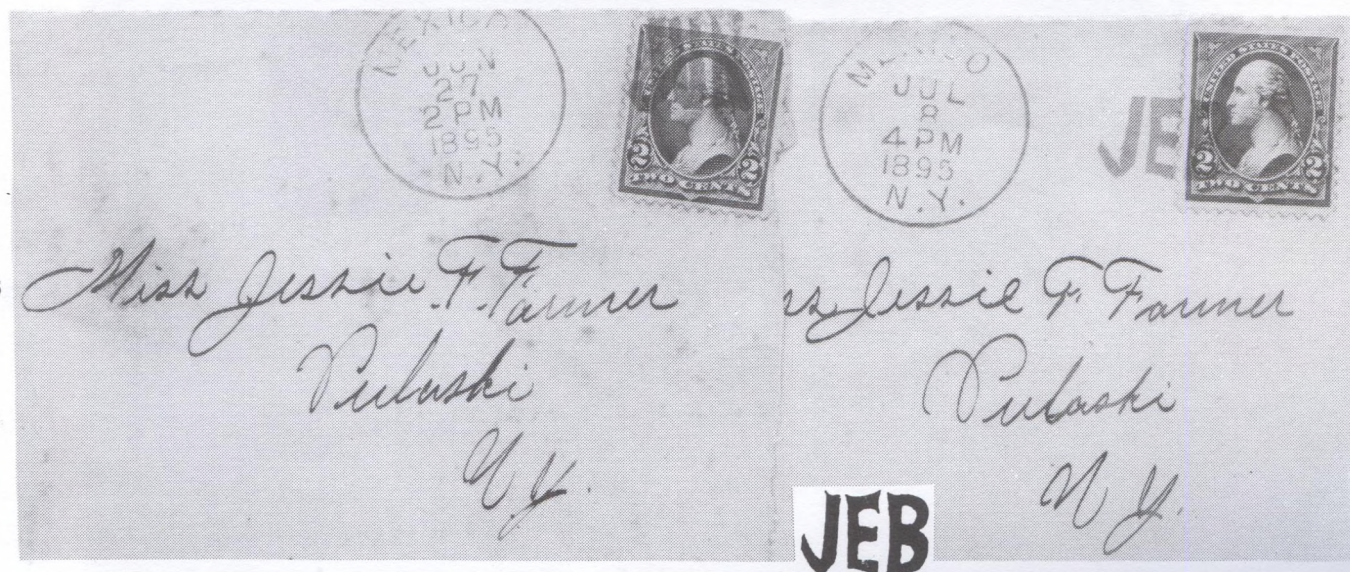 MEXICO
JUN
27
2 PM
1895
N.Y.
UNITED STATES POSTAGE
2 2
TWO CENTS
Miss Jessie F. Farmer
Pulaski
N.Y.
MEXICO
JUL
8
4 PM
1895
N.Y.
JE
UNITED STATES POSTAGE
2 2
TWO CENTS
ss Jessie F. Farmer
Pulaski
N.Y.
JEB